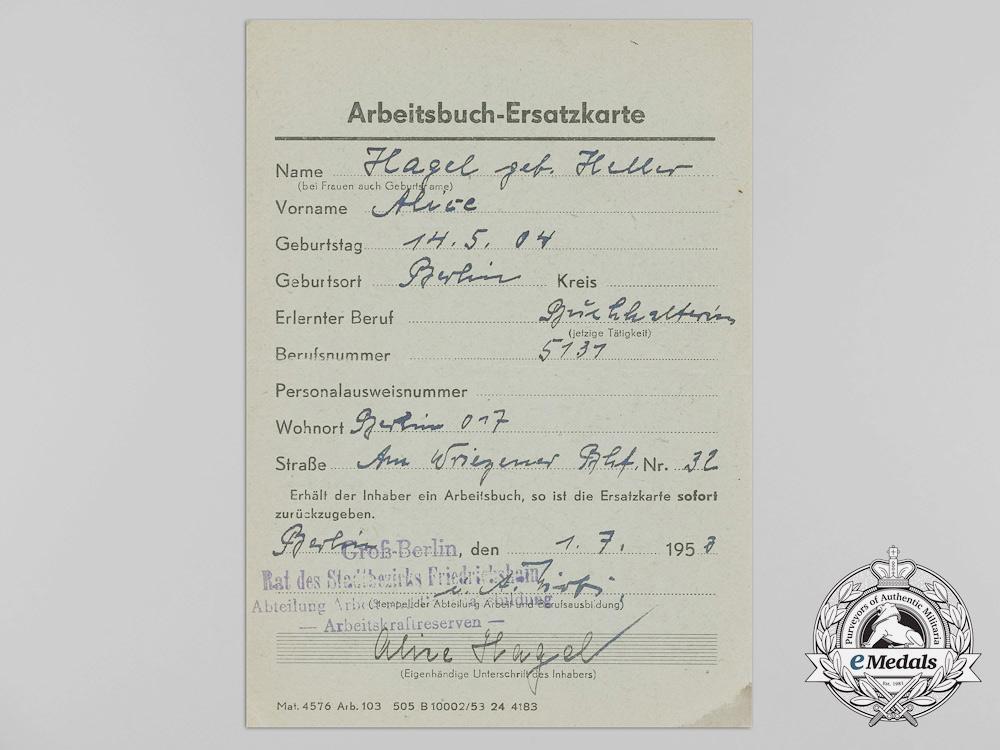 Arbeitsbuch-Ersatzkarte
Name Hagel geb. Heller
(bei Frauen auch Geburtsname)
Vorname Alice
Geburtstag 14. 5. 04
Geburtsort Berlin Kreis
Erlernter Beruf Buchhalterin
(jetzige Tätigkeit)
Berufsnummer 5131
Personalausweisnummer
Wohnort Berlin O 17
Straße Am Wriezener Bhf. Nr. 32
Erhält der Inhaber ein Arbeitsbuch, so ist die Ersatzkarte sofort
zurückzugeben.
Berlin Groß-Berlin, den 1. 7. 195
Rat des Stadtbezirks Friedrichshain
(Stempel der Abteilung Arbeit und Berufsausbildung)
Abteilung
— Arbeitskraftreserven —
Alice Hagel
(Eigenhändige Unterschrift des Inhabers)
Mat. 4576 Arb. 103 505 B 10002/53 24 4183
Purveyors of Authentic Militaria
eMedals
Est. 1981